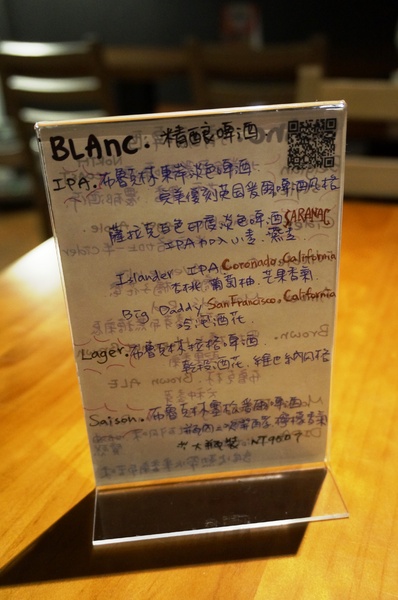 BLAnC. 精酿啤酒.
IPA. 布魯克林東岸淡色啤酒
完美復刻英國愛爾啤酒風格
薩拉克白色印度淡色啤酒 SARANAC
IPA加入小麥.燕麥
Islander IPA Coronado, California
杏桃.葡萄柚.芒果香氣.
Big Daddy SanFrancisco, California
冷泡酒花
Lager. 布魯克林拉格啤酒
乾投酒花. 維也納風格
Saison. 布魯克林 啤酒
檸檬香氣
大瓶裝
Brown ALE